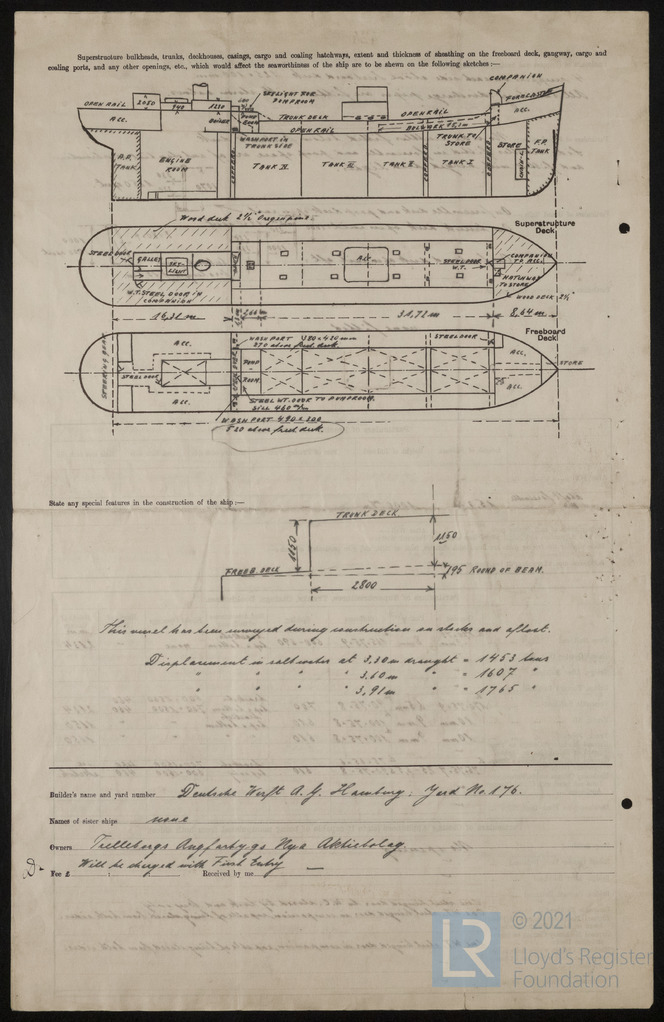 Superstructure bulkheads, trunks, deckhouses, casings, cargo and coaling hatchways, extent and thickness of sheathing on the freeboard deck, gangway, cargo and
coaling ports, and any other openings, etc., which would affect the seaworthiness of the ship are to be shewn on the following sketches :—
COMPANION
SKYLIGHT FOR
PUMPROOM
FORECASTLE
OPEN RAIL
2050
940
2220
TRUNK DECK
OPEN RAIL
ACC.
ACC.
BOILER
PUMP
ROOM
OPEN RAIL
BULWARK
WASHPORT IN
TRUNK SIDE
TRUNK TO
STORE
A.P.
TANK
ENGINE
ROOM
TANK IV
TANK III
TANK II
TANK I
STORE
F.P.
TANK
Wood deck 2½" Oregonpine
Superstructure
Deck
STEEL DOOR
GALLEY
SKY-
LIGHT
STEEL DOOR
W.T.
COMPANION
TO ACC.
HATCHWAY
TO STORE
W.T. STEEL DOOR IN
COMPANION
WOOD DECK 2½"
16,32 m
31,72 m
8,64 m
Freeboard
Deck
WASHPORT 380 x 420 mm
370 above freeb. deck
STEEL DOOR
STEERING GEAR
ACC.
ACC.
STORE
STEEL DOOR
PUMP
ROOM
ACC.
ACC.
STEEL WT. DOOR TO PUMPROOM
SILL 460 m/m
WASHPORT 490 x 200
820 above freeb. deck.
State any special features in the construction of the ship :—
TRUNK DECK
1150
1150
FREEB. DECK
195 ROUND OF BEAM.
2800
This vessel has been surveyed during construction on stocks and afloat.
Displacement in saltwater at 3,30 m draught = 1453 tons
" " " " 3,60 m " = 1607 "
" " " " 3,91 m " = 1765 "
Builder's name and yard number Deutsche Werft A. G. Hamburg. Yard No. 176.
Names of sister ships none
Owners Trelleborgs Angfartygs Nya Aktiebolag.
Will be charged with First Entry
Fee £ Received by me —
LR
© 2021
Lloyd's Register
Foundation